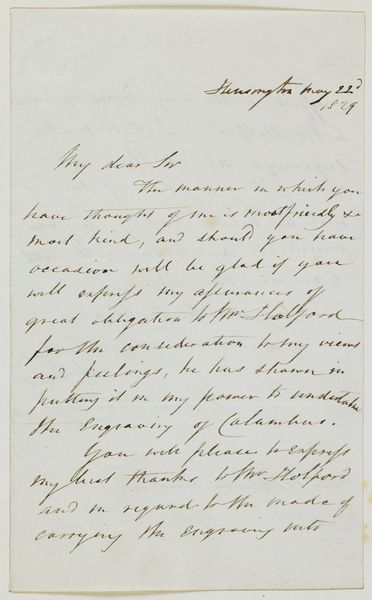 Kensington May 22d
1829
My dear Sir
The manner in which you
have thought of me is most friendly &
most kind, and should you have
occasion will be glad if you
will express my assurances of
great obligation to Mr. Holford
for the consideration to my views
and feelings, he has shown in
putting it in my power to undertake
the Engraving of Columbus.
You will please to express
my best thanks to Mr Holford
and in regard to the mode of
carrying the engraving into